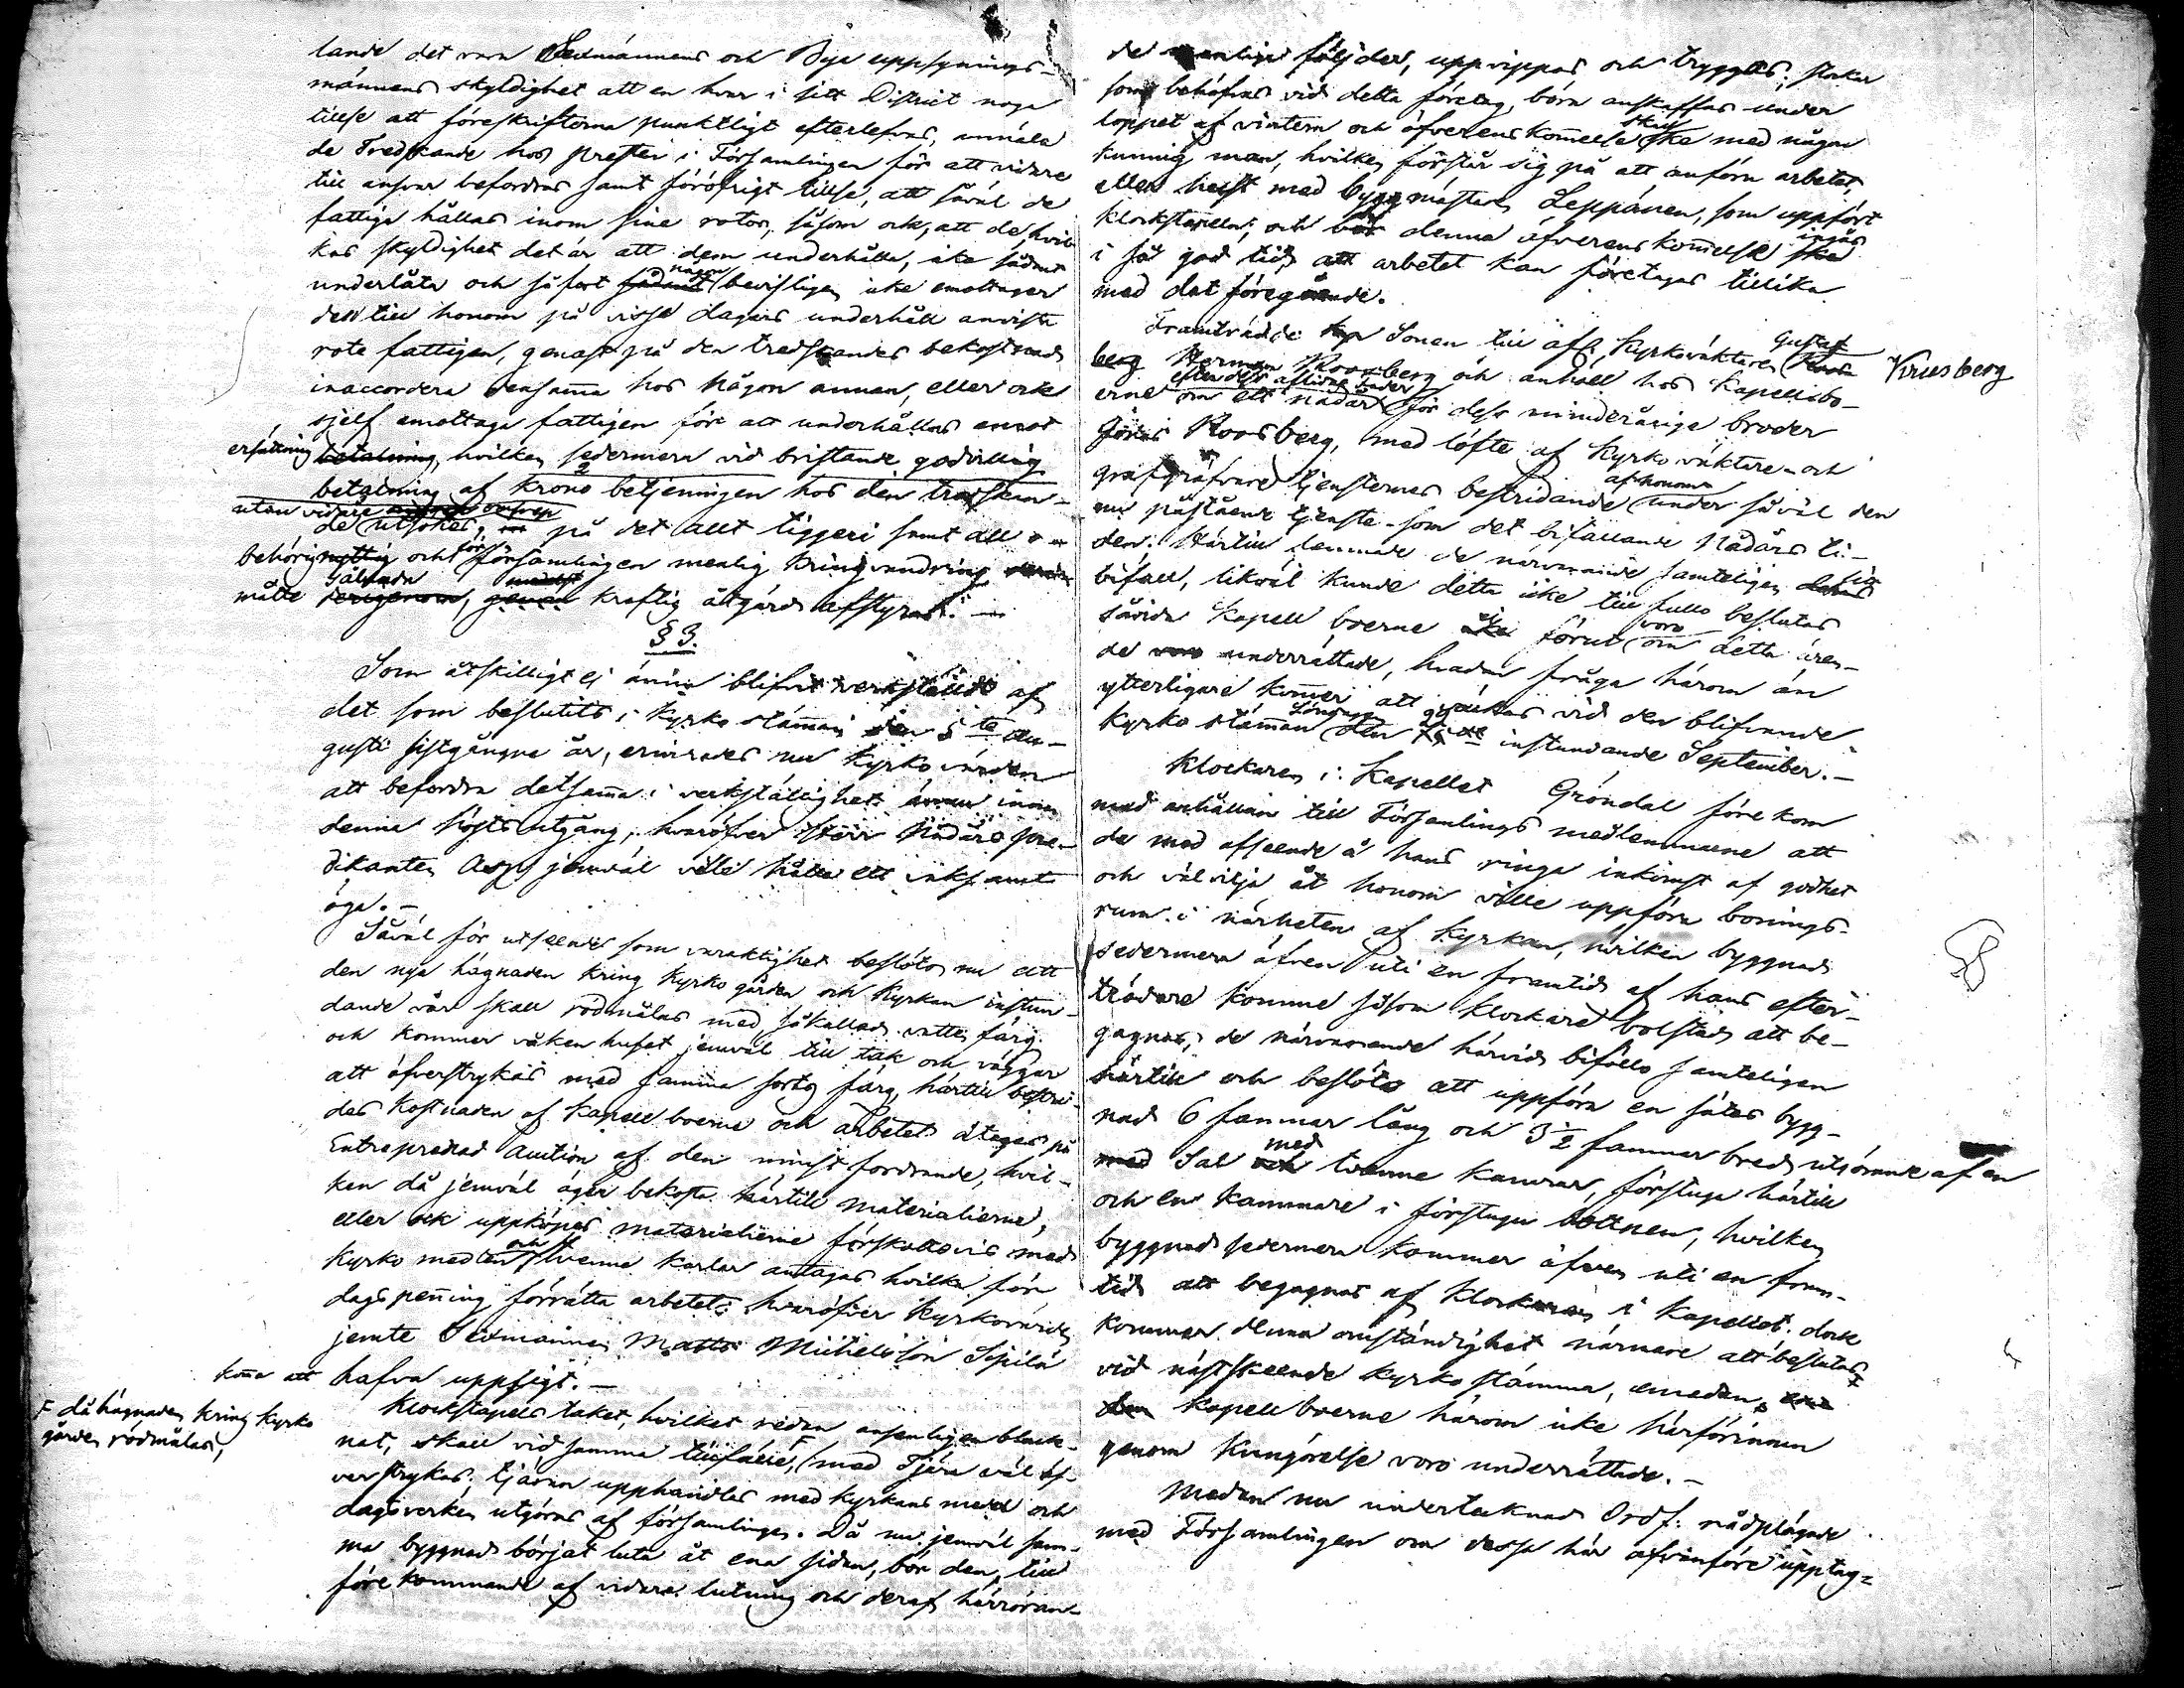 lande det vara Sexmännens och Bye uppsynings-
männens skyldighet att en hvar i sitt District noga
tillse att föreskrifterna punktligt efterlefvas, anmäla
de Tredskande hos presten i Församlingen för att vidare
till ansvar befordras samt föröfrigt tillse, att såväl de
fattige hållas inom sine rotar, såsom ock, att de, hvil-
kas skyldighet det är att dem underhålla, icke sådant
underlåta och så fort sådant någon bevisligen icke emottager
den till honom på visse dagars underhåll anviste
rote fattigen, genast på den tredskandes bekostnad
inaccordera densamma hos någon annan, eller ock
sjelf emottaga fattigen för att underhållas emot
ersättning betalning, hvilken sedermera vid bristande godvillig
betalning af Krono betjeningen hos den tredskan-
utan vidare omsvep
de utsökes, på det allt tiggeri samt all o-
behörig nyttig och för församlingen menlig kringvandring
måtte sålunda derigenom, genom medelst kraftig åtgärd afstyras. —
§ 3.
Som åtskilligt ej ännu blifvit verkstäldt af
det som beslutits i Kyrkostämman den 5te Au-
gusti sistgångne år, erinrades nu Kyrkovärden
att befordra detsamma i verkställighet innom
denna hösts utgång, hvaröfver Herr Nådårs pre-
dikanten Asp jemväl ville hålla ett vaksamt
öga. —
Såväl för utseende som varaktighet beslöts nu att
den nya hägnaden kring Kyrko gården och Kyrkan instun-
dande vår skall rödmålas med såkallad vatten färg.
och kommer våken huset jemväl till tak och väggar
att öfverstrykas med samma sorts färg, härtill bestri-
des kostnaden af Kapell boerne och arbetet åtages på
Entreprenad Auction af den minst fordrande, hvil-
ken då jemväl äger bekosta härtill materialierne,
eller ock uppköpes materialierne förskottsvis med
Kyrko medlen och tvenne karlar antagas hvilka för
dagspenning förrätta arbetet; hvaröfver Kyrkovärden
jemte Sexmannen Matts Michelsson Sipilä
komma att hafva uppsigt. —
Klockstapels taket, hvilket redan ansenligen blek-
F då hägnaden kring Kyrko
gården rödmålas,
nat, skall vid samma tillfälle, F med Tjära väl öf-
verstrykas; tjäran upphandlas med kyrkans medel och
dagsverken utgöras af församlingen. Då nu jemväl sam-
ma byggnad börjat luta åt ena sidan, bör den, till
förekommande af vidare lutning och deraf härröran-
de menliga följder, uppvippas och tryggas; stockar
som behöfvas vid detta företag, böra anskaffas under
loppet af vintern och öfverenskommelse ske med någon
kunnig man, hvilken förstår sig på att anföra arbetet,
eller helst med byggmästaren Leppänen, som uppfört
klockstapeln; och bör denna öfverenskommelse ingås ske
i så god tid, att arbetet kan företagas tillika
med det föregående.
Framträdde Sonen till afl. Kyrkoväktaren Gustaf Kruusberg
berg Herman Roosberg och anhöll hos Kapellbo-
erne om ett efter dess aflidne fader nådår för dess minderårige broder
Jonas Roosberg, med löfte af Kyrko väktare- och
grafgräfvare tjensternes bestridande af honom under såväl den
nu påstående tjenste- som det bifallande Nådårs ti-
den. Härtill lemnade de närvarande samteligen sitt
bifall, likväl kunde detta icke till fullo beslutas
såvida Kapell boerne icke förut voro om detta ären-
de voro underrättade, hvadan fråga härom än
ytterligare kommer att väckas vid den blifvande
Kyrko stämman Söndagen den instundande September. —
Klockaren i Kapellet Gröndal förekom
med anhållan till Församlings medlemmarne att
de med afseende å hans ringa inkomst af godhet
och välvilja åt honom ville uppföra bonings-
rum i närheten af Kyrkan, hvilken byggnad
sedermera äfven uti en framtid af hans efter-
trädare komme såsom Klockare bolstad att be-
gagnas; de närvarande härvid biföllo samteligen
härtill och beslöto att uppföra en sådan bygg-
nad 6 famnar lång och 3 1/2 famnar bred, utgörande af en
med Sal med och tvenne kamrar, förstuga härtill
och en kammare i förstugu bottnen, hvilken
byggnad sedermera kommer äfven uti en fram-
tid att begagnas af Klockaren i Kapellet. dock
kommer denna omständighet närmare att beslutas
vid nästskeende Kyrko stämma, emedan
Kapell boerne härom icke härförinnan
genom kungörelse voro underrättade. —
Medan nu undertecknad Ordf. rådplägade
med Församlingen om dessa här ofvanföre upptag-